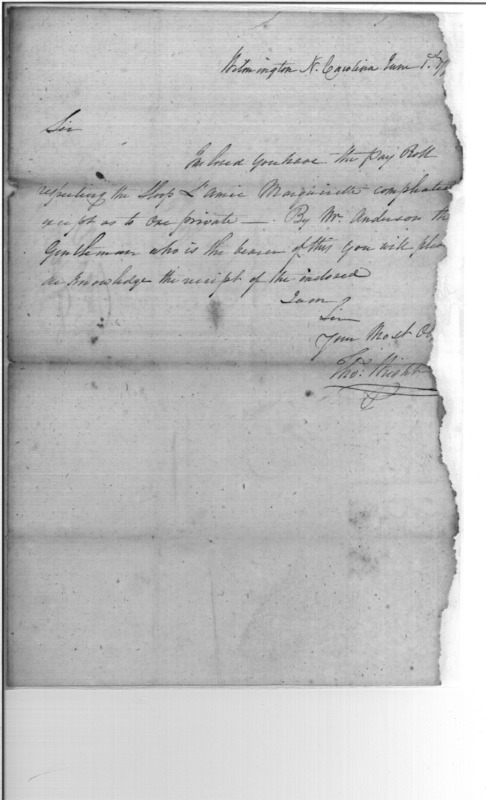 Wilmington N. Carolina June 1st
Sir
Inclosed you have the Pay Roll
respecting the Sloop L'amie Marguirette compleated
except as to one private —. By Mr. Anderson the
Gentleman who is the bearer of this you will please
acknowledge the receipt of the inclosed
I am
Sir
Your Most Ob
Thos. Wright